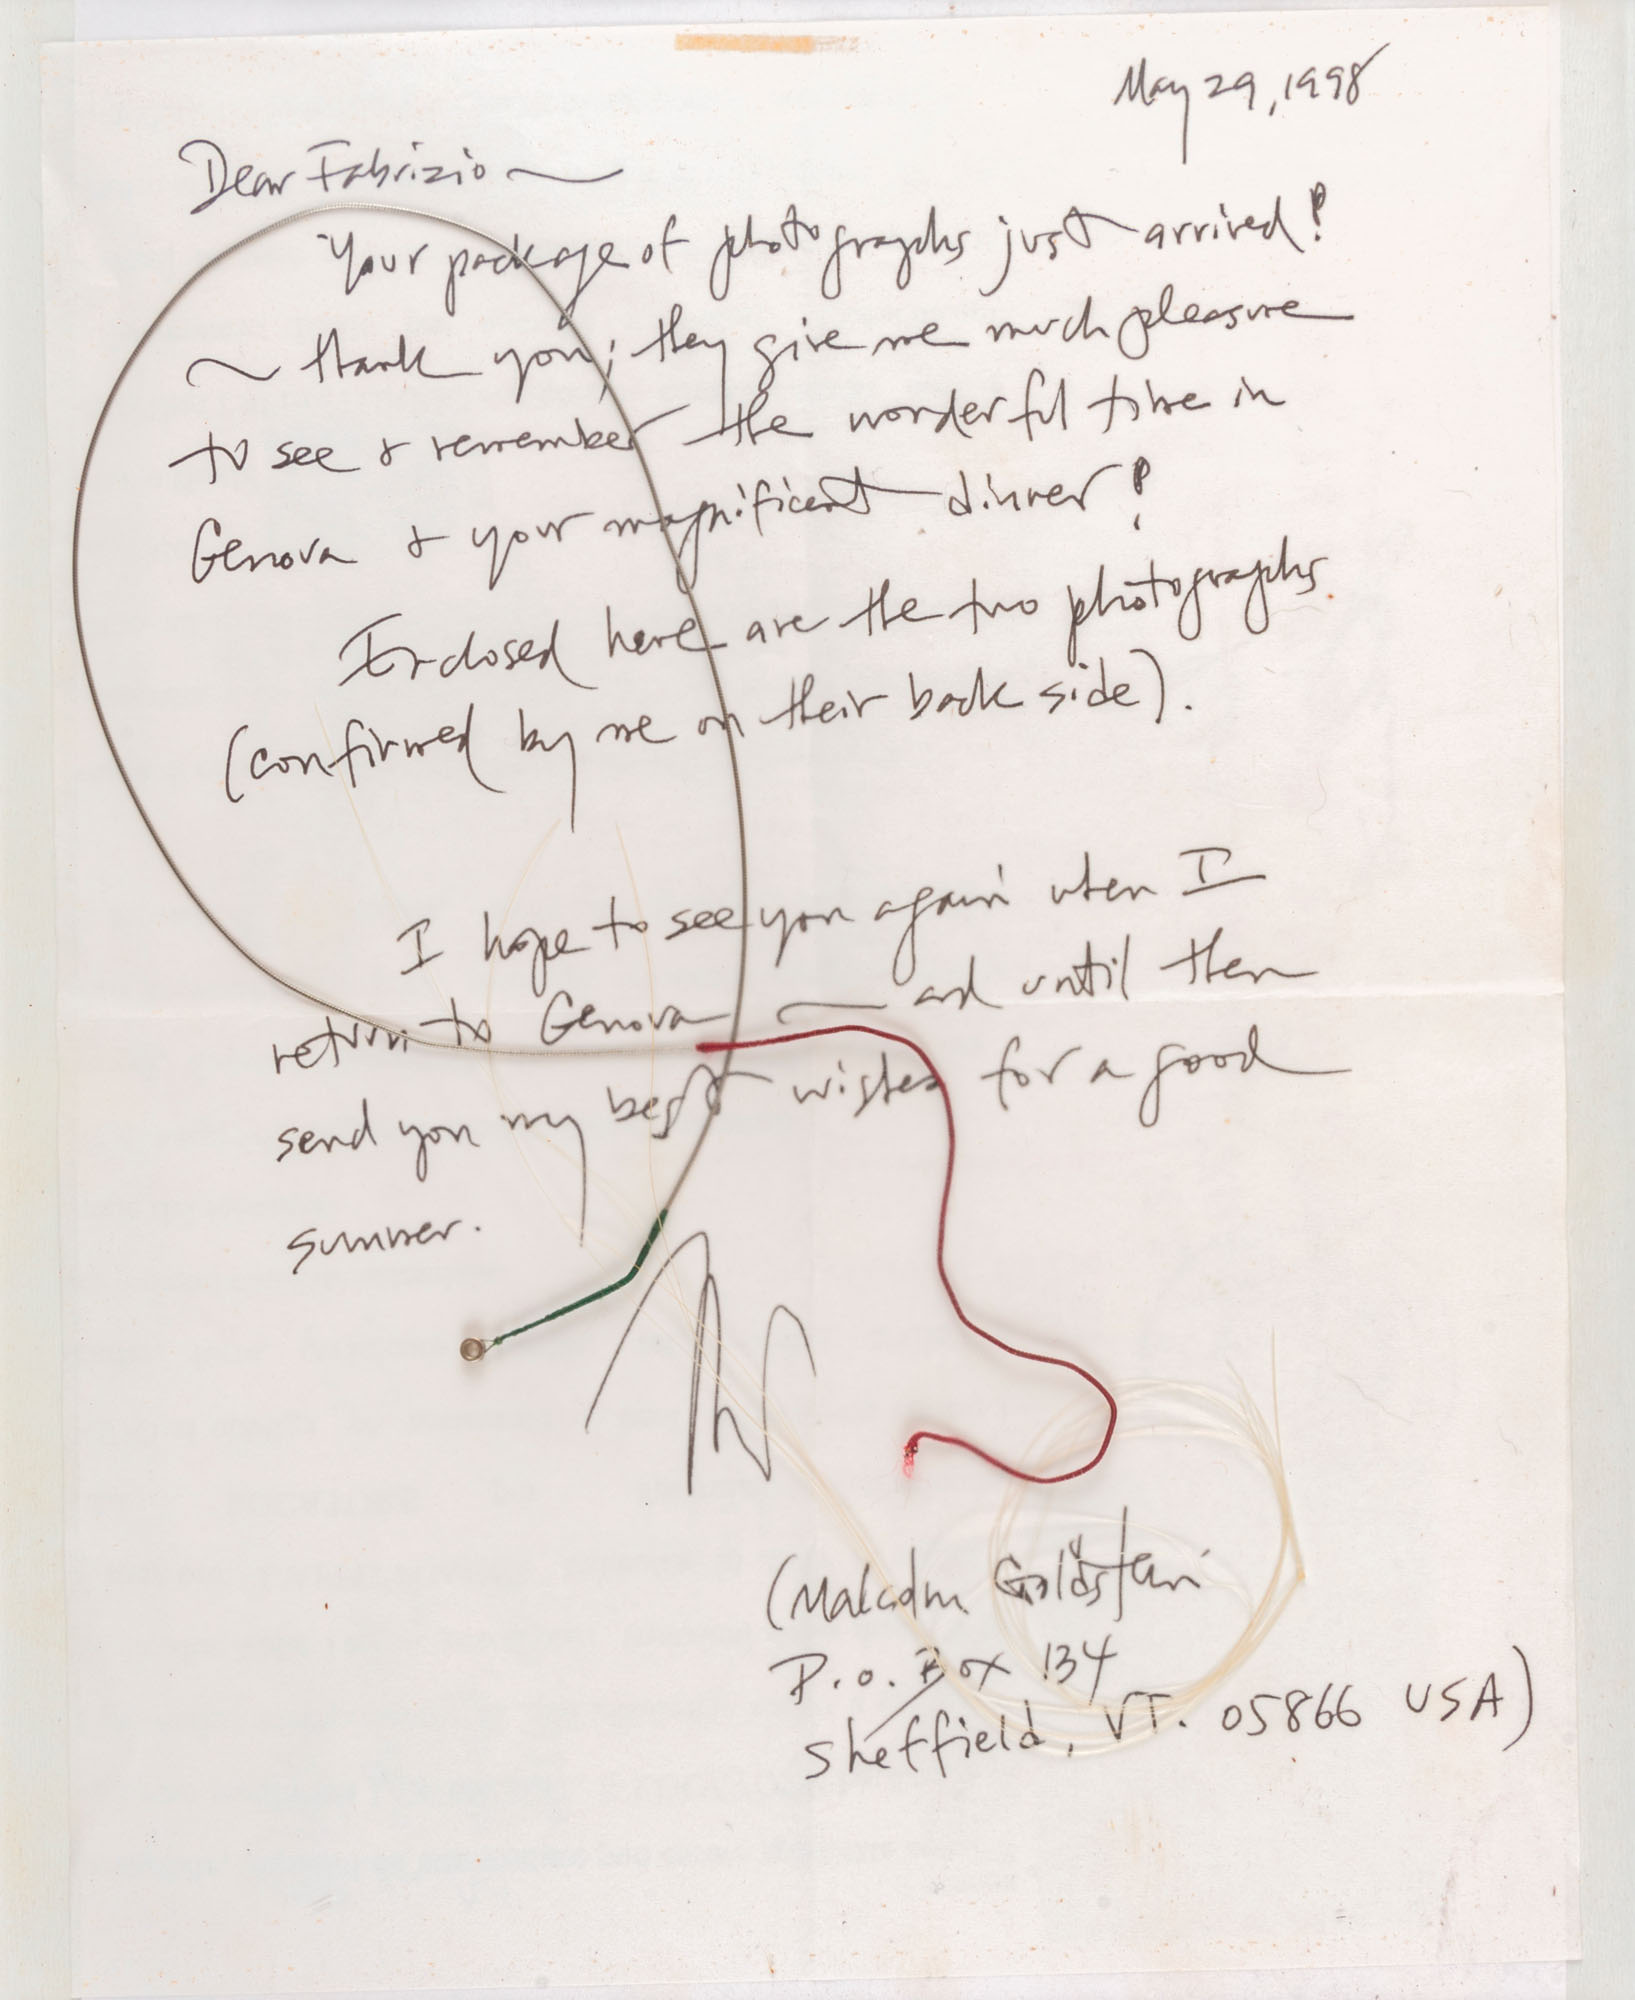 May 29, 1998
Dear Fabrizio ~
Your package of photographs just arrived!
~ thank you; they give me much pleasure
to see & remember the wonderful time in
Genova & your magnificent dinner!
Enclosed here are the two photographs
(confirmed by me on their back side).
I hope to see you again when I
return to Genova ~ and until then
send you my best wishes for a good
summer.
(Malcolm Goldstein
P.O. Box 134
Sheffield, VT. 05866 USA)